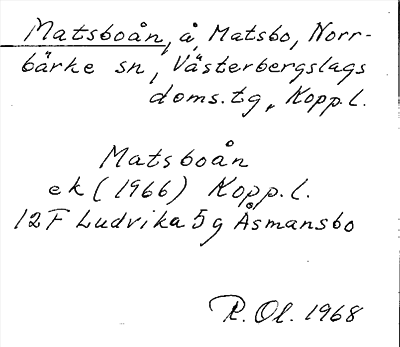 Matsboån, å, Matsbo, Norr-
bärke sn, Västerbergslags
doms.tg, Kopp.l.
Matsboån
ek (1966) Kopp.l.
12F Ludvika 5g Åsmansbo
R.Ol. 1968